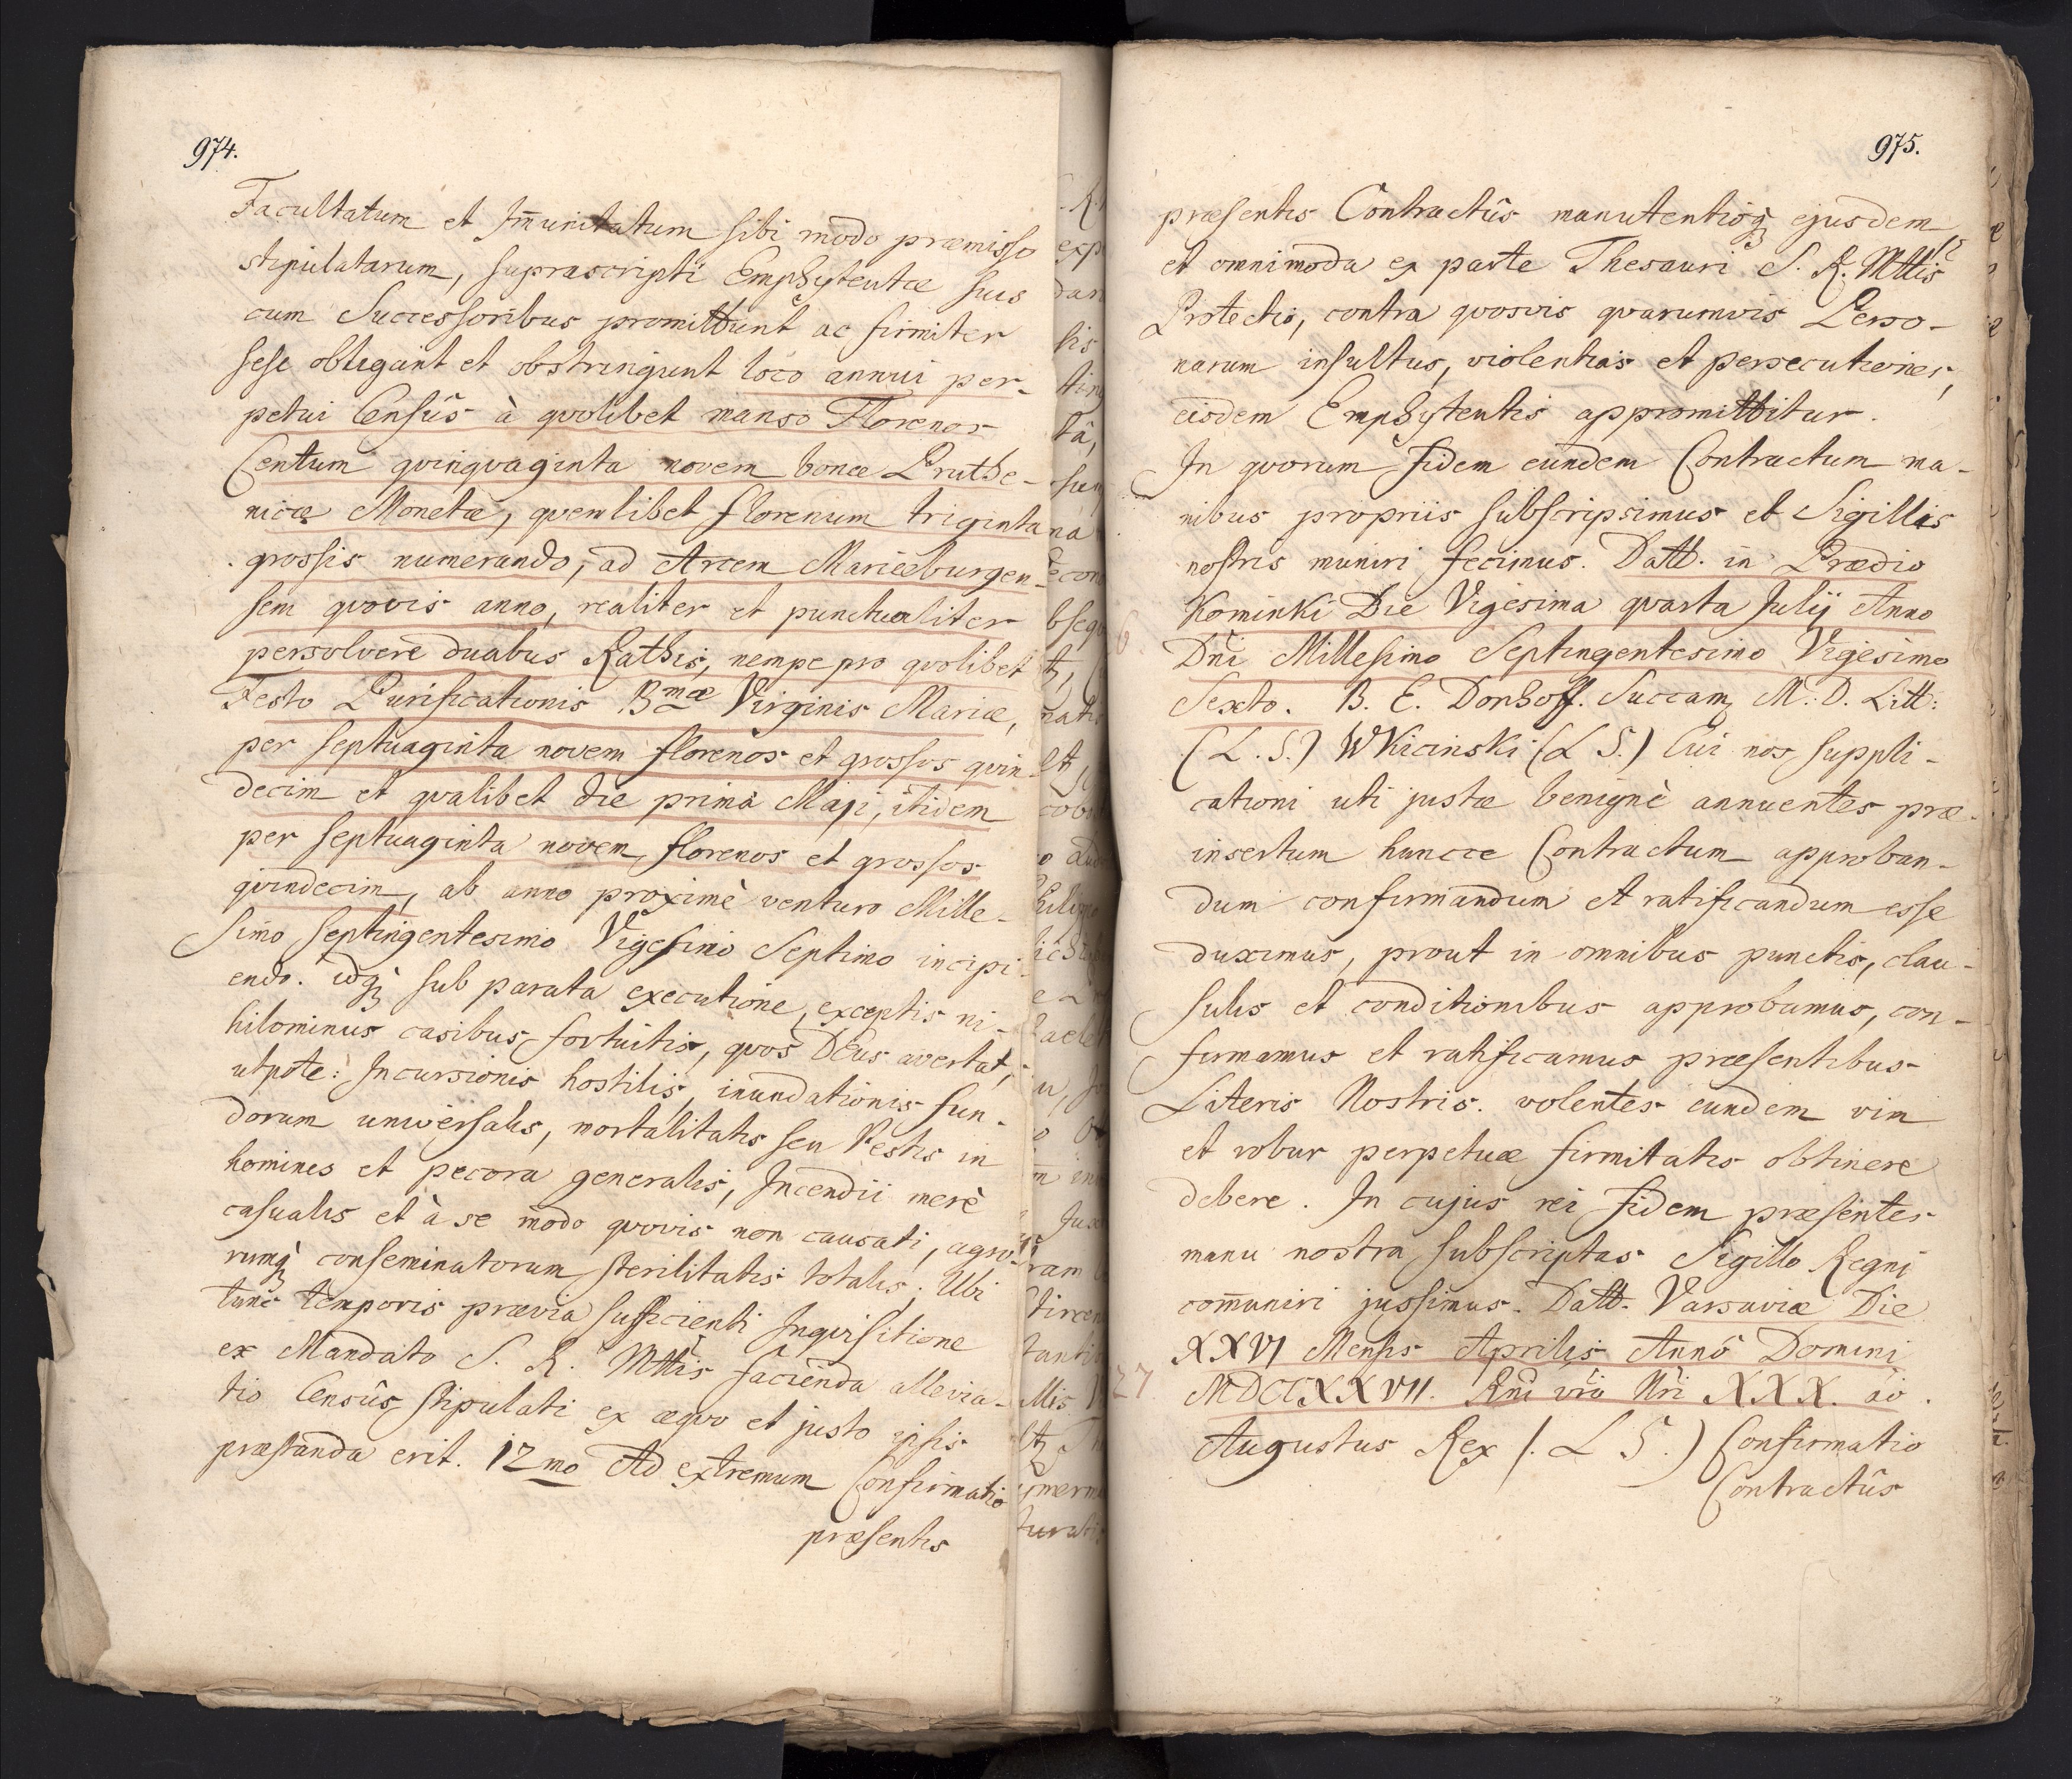 974.
Facultatum et Im̄unitatum sibi modo præmisso
stipulatarum, suprascripti Emphyteutæ suis
cum Successoribus promittunt ac firmiter
sese obligant et obstringunt loco annui per-
petui Censûs à qvolibet manso Florenos
Centum qvinqvaginta novem bonæ Pruthe-
nicæ Monetæ, qvemlibet florenum triginta
grossis numerando, ad Arcem Marieburgen-
sem qvovis anno, realiter et punctualiter
persolvere duabus Rathis, nempe pro qvolibet
Festo Purificationis Bmæ Virginis Mariæ,
per septuaginta novem florenos et grossos qvin-
decim et qvalibet die prima Maji, itidem
per septuaginta novem, florenos et grossos
qvindecim, ab anno proximè venturo Mille-
simo Septingentesimo Vigesimo Septimo incipi-
endo. idq; sub parata executione, exceptis ni-
hilominus casibus, fortuitis, qvos DEus avertat,
utpote: Incursionis hostilis, inundationis fun-
dorum universalis, mortalitatis seu Pestis in
homines et pecora generalis, Incendii merè
casualis et à se modo qvovis non causati, agro-
rumq; conseminatorum sterilitatis totalis; Ubi
tunc temporis prævia sufficienti Inqvisitione
ex Mandato S. R. Mttis facienda allevia-
tio Censûs, stipulati ex æqvo et justo ipsis
præstanda erit. 12mo Ad extremum Confirmatio
præsentis
975.
præsentis Contractûs manutentioq; ejusdem
et omnimoda ex parte Thesauri S. R. Mttis
Protectio, contra qvosvis qvarumvis Perso-
narum insultus, violentias et persecutiones,
eisdem Emphyteutis appromittitur.
In qvorum fidem eundem Contractum ma-
nibus propriis subscripsimus et Sigillis
nostris muniri fecimus. Datt. in Prædio
Kominki Die Vigesima qvarta Julij Anno
Dn̄i Millesimo Septingentesimo Vigesimo
Sexto. B. E. Donhoff. Succam, M. D. Litt:
(L. S.) WKicinski (L S.) Cui nos, suppli-
cationi uti justæ benignè annuentes præ-
insertum huncce Contractum approban-
dum confirmandum et ratificandum esse
duximus, prout in omnibus punctis, clau-
sulis et conditionibus approbamus, con-
firmamus et ratificamus præsentibus
Literis Nostris. volentes eundem vim
et robur perpetuæ firmitatis obtinere
debere. In cujus rei fidem præsentes
manu nostra subscriptas Sigillo Regni
com̄uniri jussimus. Datt. Varsaviæ Die
XXVI Mensis Aprilis Annô Domini
MDCCXXVII. Rni vrō Nri XXX. aō.
Augustus Rex (. L S.) Confirmatio
Contractûs